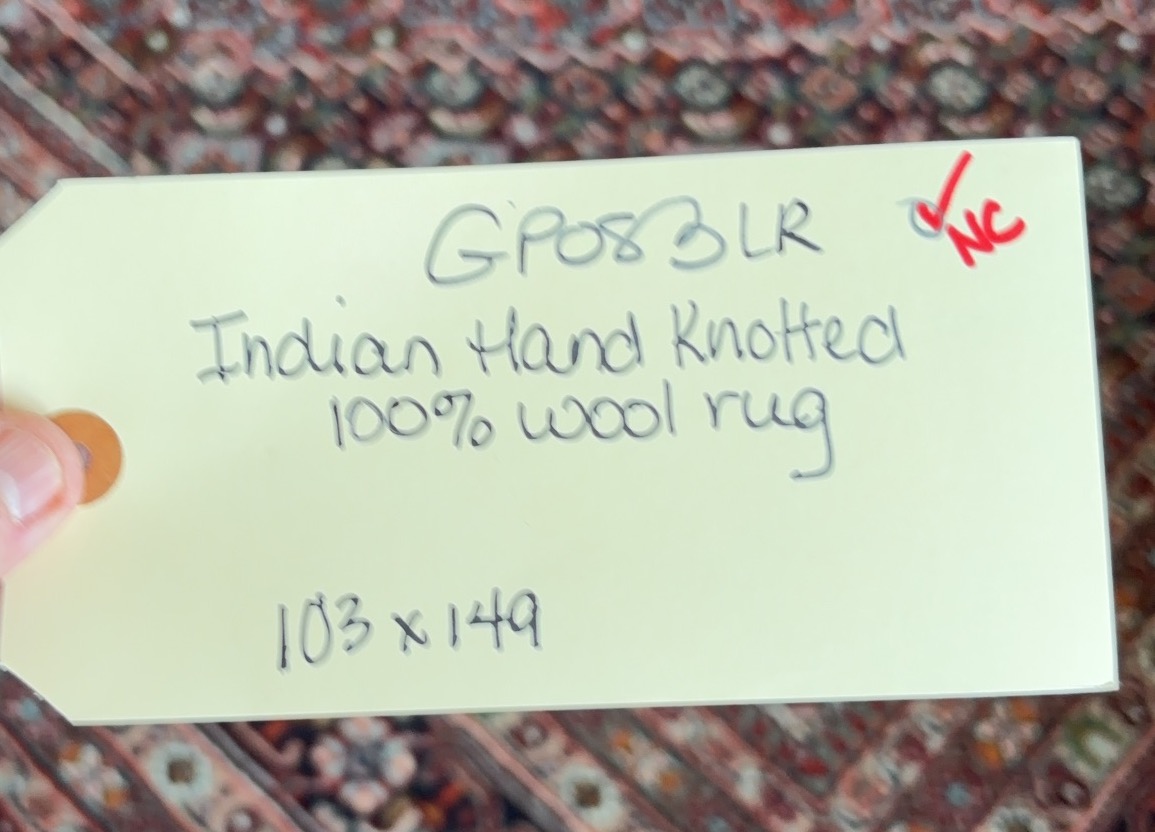 GP083LR ✓
NC
Indian Hand Knotted
100% wool rug
103 x 149